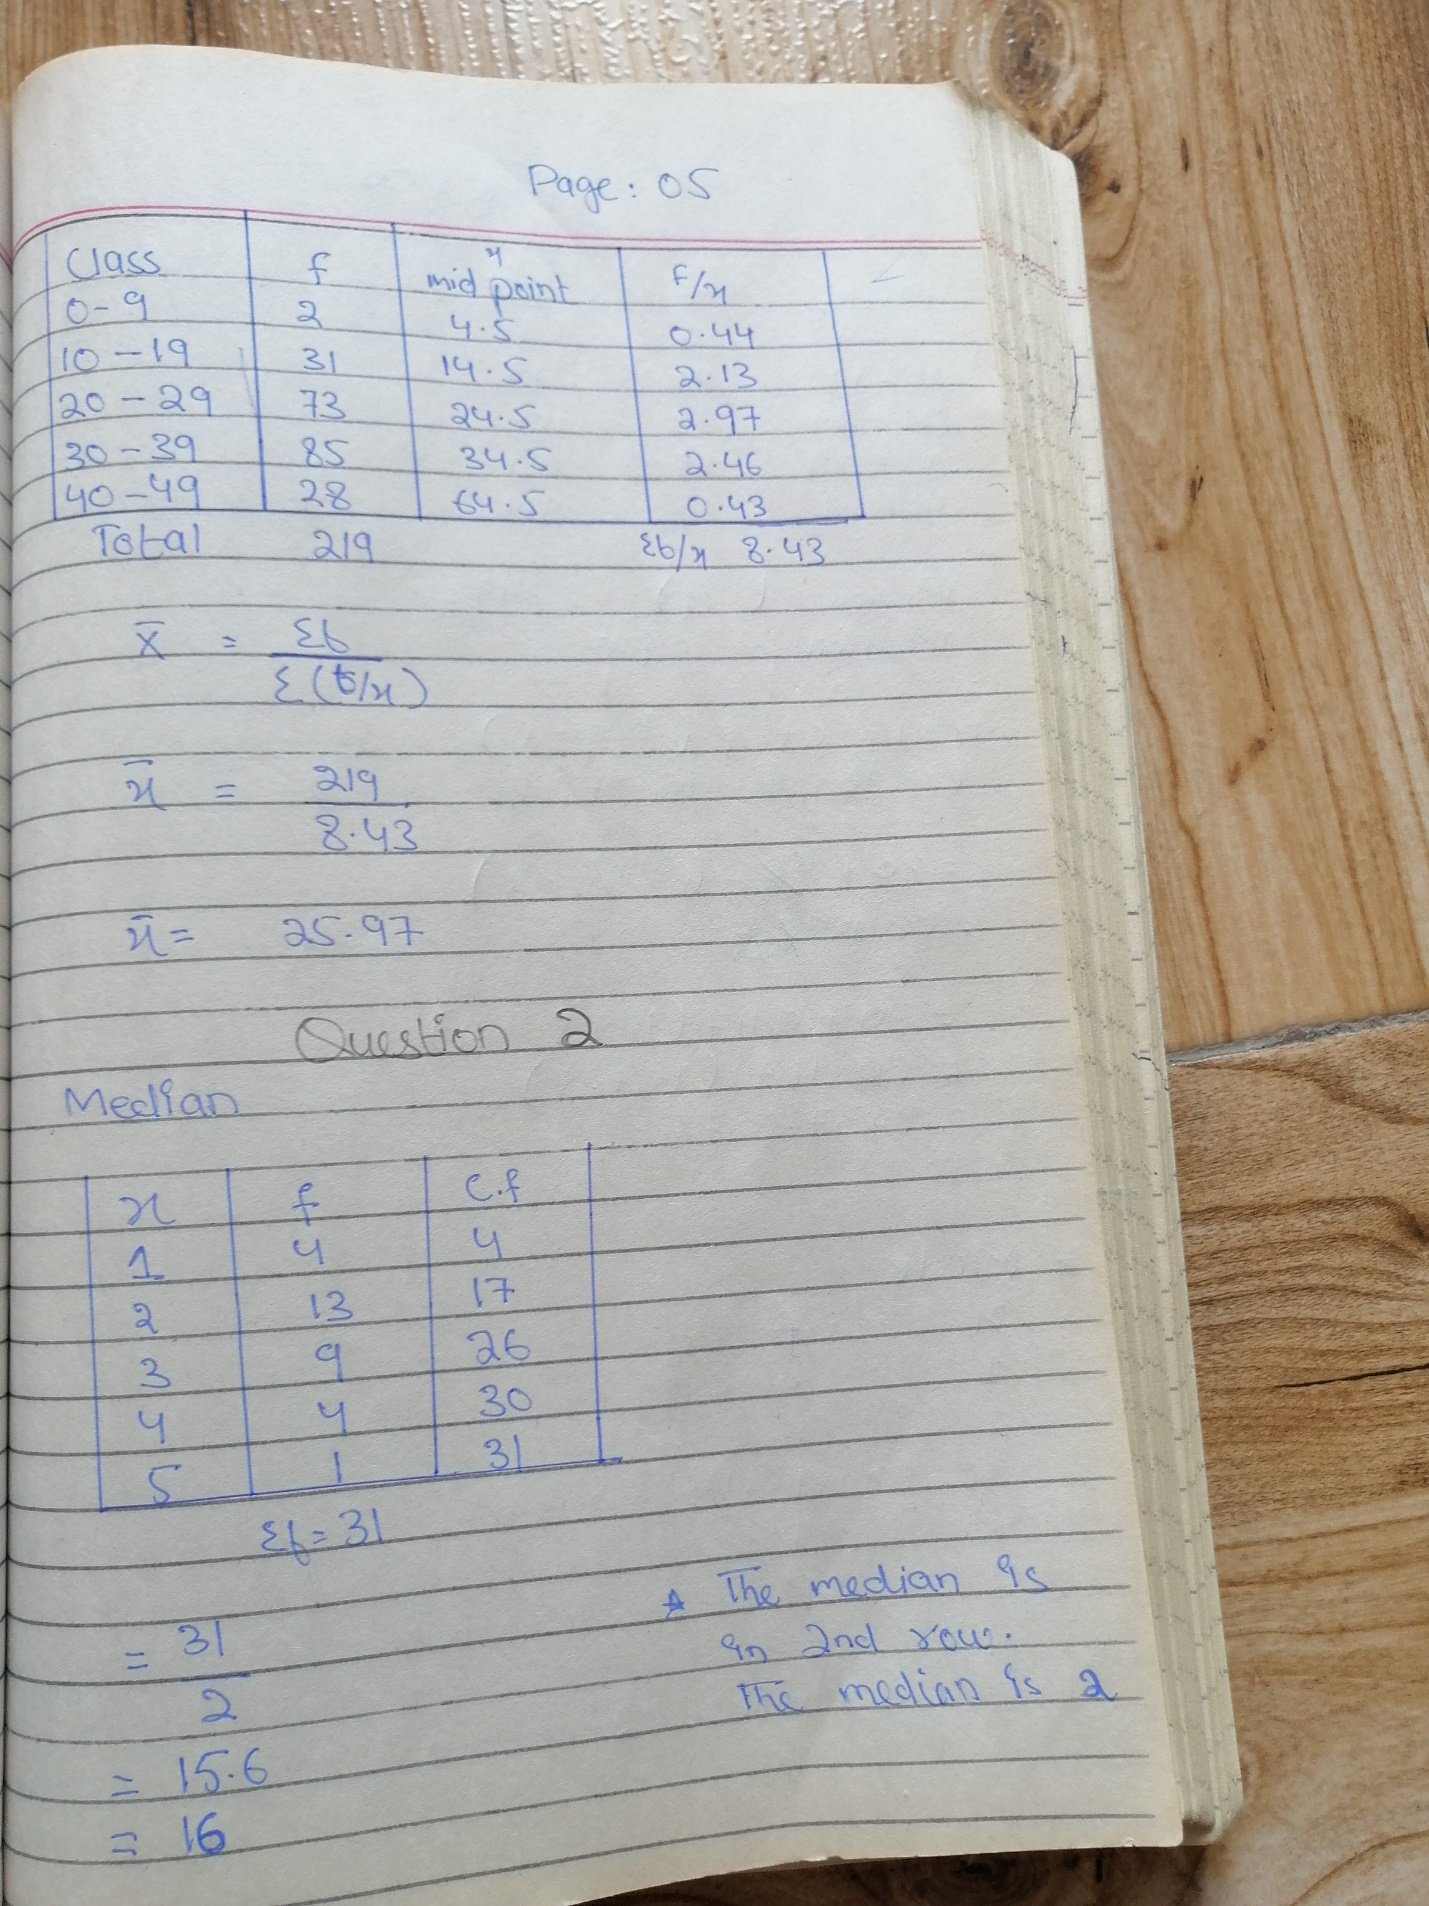 Page: 05
Class f x mid point f/x
0-9 2 4.5 0.44
10-19 31 14.5 2.13
20-29 73 24.5 2.97
30-39 85 34.5 2.46
40-49 28 64.5 0.43
Total 219 Σf/x 8.43
x̄ = Σf / Σ(f/x)
x̄ = 219 / 8.43
x̄ = 25.97
Question 2
Median
x f c.f
1 4 4
2 13 17
3 9 26
4 4 30
5 1 31
Σf = 31
= 31 / 2
= 15.6
= 16
★ The median is
in 2nd row.
The median is 2